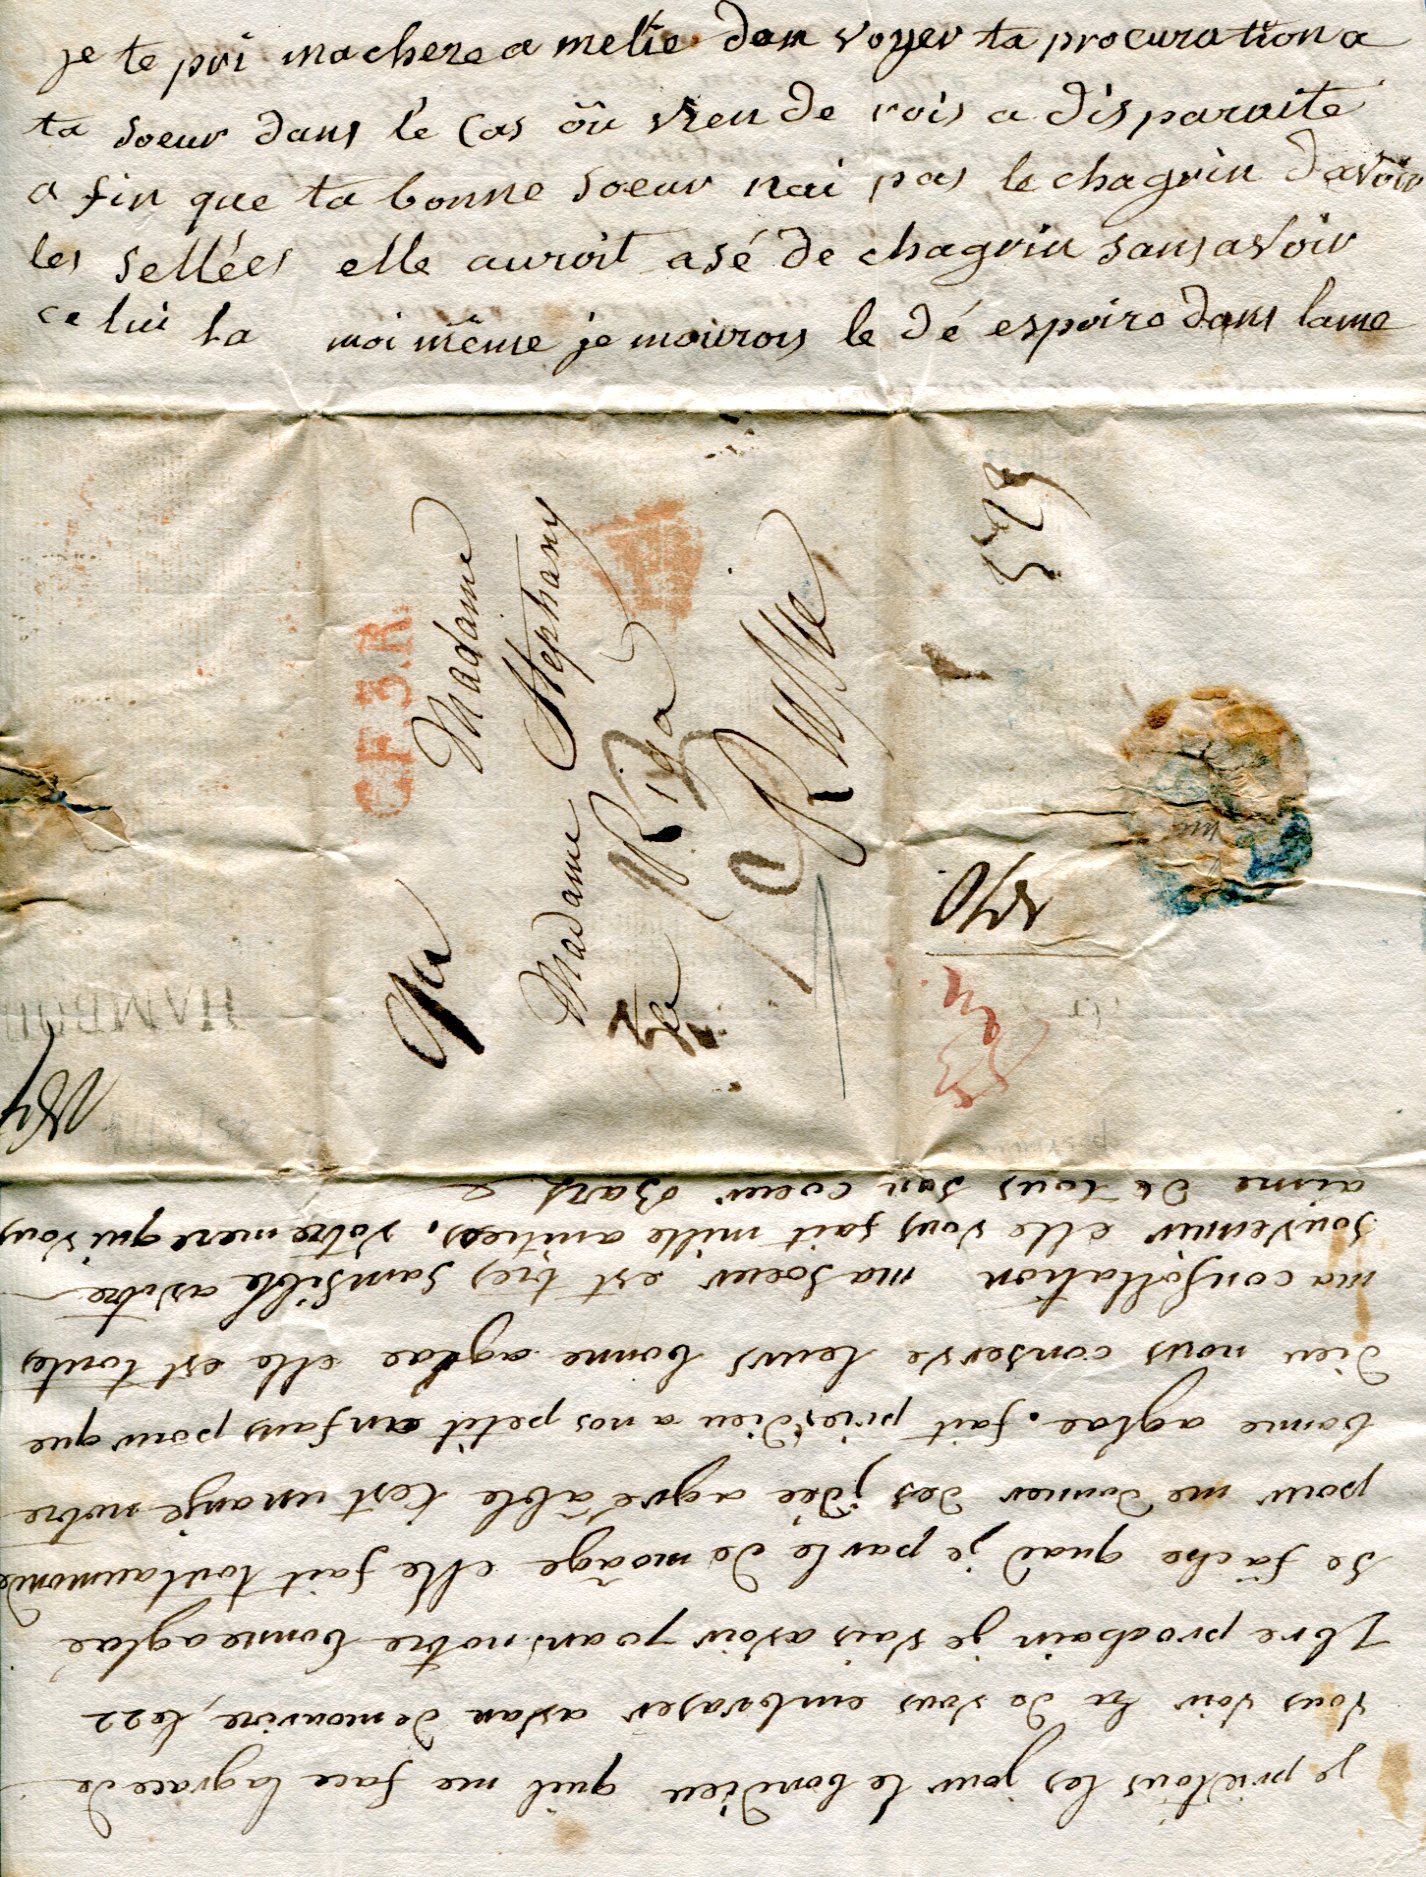 je te pri ma chere a melie dem voyer ta procuration a
ta soeur dans le cas ôu vien de rois a disparaite
a fin que ta bonne soeur nai pas le chagrin davoir
les sellées elle auroit asé de chagrin sans avoir
ce lui la moi même je mourrois le dé espoire dans lame
C.F.3.R.
A
Madame
Madame Stephany
Riga
Russie
HAMBOU
je prie tous les jour le bon dieu quil me face la grace de
vous voir et de vous embraser avan de mourire, le 22
7bre prochain je vais avoir 70 ans notre bonne aglaé
se fache quad je parle de mo age elle fait tout au monde
pour me donner des jdée agré able c'est un ange notre
bonne aglae. fait prier dieu a nos petit enfans pour que
dieu nous conserve leurs bonne aglae elle est toutes
ma consollation ma soeur est tres sansible a votre
souvenir elle vous fait mille amities. votre mere qui vous
aime de tous son coeur